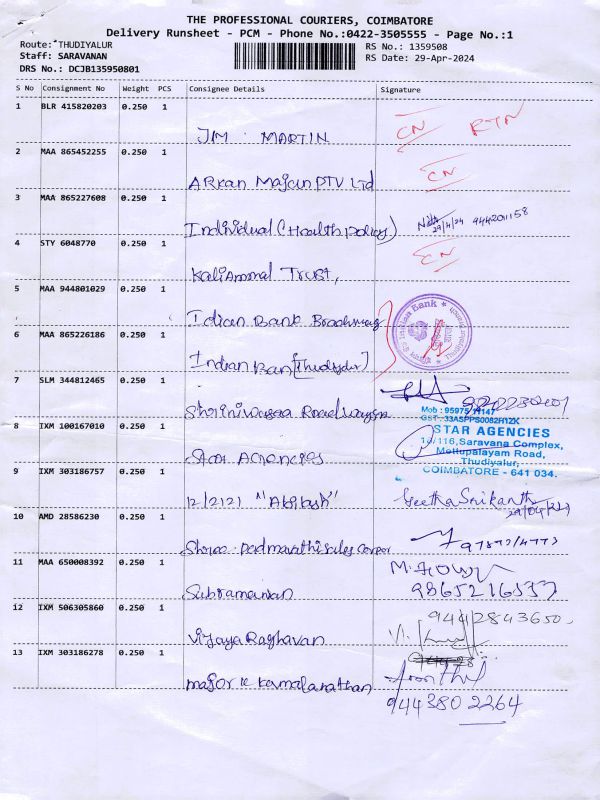 THE PROFESSIONAL COURIERS, COIMBATORE
Delivery Runsheet - PCM - Phone No.:0422-3505555 - Page No.:1
Route: THUDIYALUR
Staff: SARAVANAN
DRS No.: DCJB135950801
RS No.: 1359508
RS Date: 29-Apr-2024
S No Consignment No Weight PCS Consignee Details Signature
1 BLR 415820203 0.250 1
JM. MARTIN CN RTN
2 MAA 865452255 0.250 1
ARkan Majun PTV Ltd CN
3 MAA 865227608 0.250 1
Individual (Health policy) 29/4/24 9442011158
4 STY 6048770 0.250 1
Kaliammal TRUST, CN
5 MAA 944801029 0.250 1
Indian Bank
6 MAA 865226186 0.250 1
Indian Ban [Thudiyalur]
Indian Bank
Thudiyalur
7 SLM 344812465 0.250 1
Shriniwasaa Roadways
8 IXM 100167010 0.250 1
Star AGENCIES
STAR AGENCIES
16/116, Saravana Complex,
Mettupalayam Road,
Thudiyalur,
COIMBATORE - 641 034.
9 IXM 303186757 0.250 1
12/2121 "Abilash" Geetha Srikanth
10 AMD 28586230 0.250 1
Shree. Padmavathi Sales Corpor
11 MAA 650008392 0.250 1
Subramanian
9865216537
12 IXM 506305860 0.250 1
Vijaya Raghavan
9442843650
13 IXM 303186278 0.250 1
major K Kamalanathan
9443802264